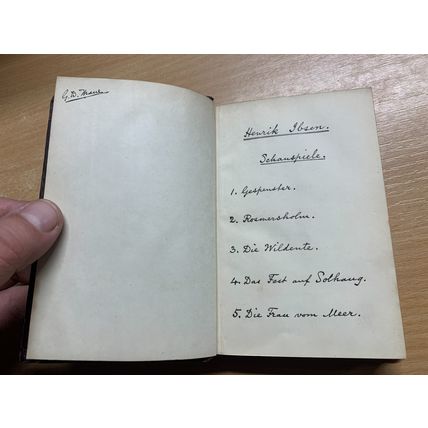 G. D.
Henrik Ibsen.
Schauspiele.
1. Gespenster.
2. Rosmersholm.
3. Die Wildente.
4. Das Fest auf Solhaug.
5. Die Frau vom Meer.